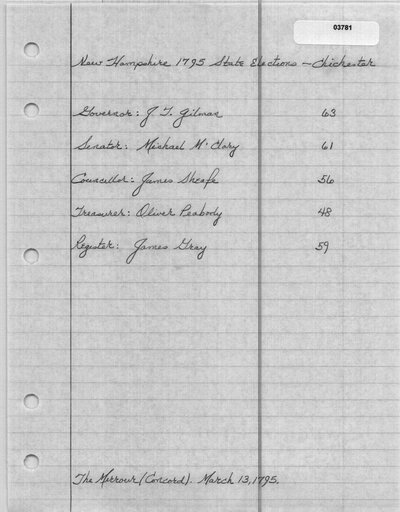 03781
New Hampshire 1795 State Elections - Chichester
Governor: J T. Gilman 63
Senator: Michael M'Clary 61
Councillor: James Sheafe 56
Treasurer: Oliver Peabody 48
Register: James Gray 59
The Mirrour (Concord). March 13, 1795.